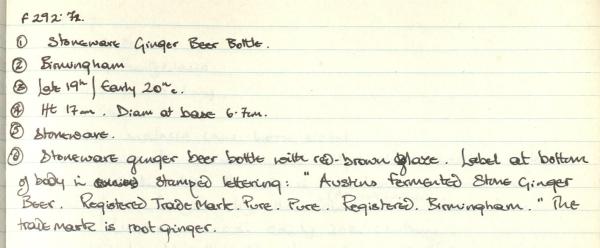 F292'72.
① Stoneware Ginger Beer Bottle.
② Birmingham
③ Late 19th / Early 20th c.
④ Ht 17cm. Diam at base 6.7cm.
⑤ Stoneware.
⑥ Stoneware ginger beer bottle with red-brown glaze. Label at bottom
of body in stamped lettering: "Austins fermented Stone Ginger
Beer. Registered Trade Mark. Pure. Pure. Registered. Birmingham." The
trade mark is root ginger.